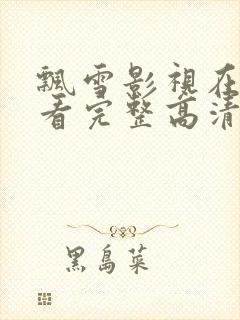 飄雪影視在
看完整高清
黑島菜